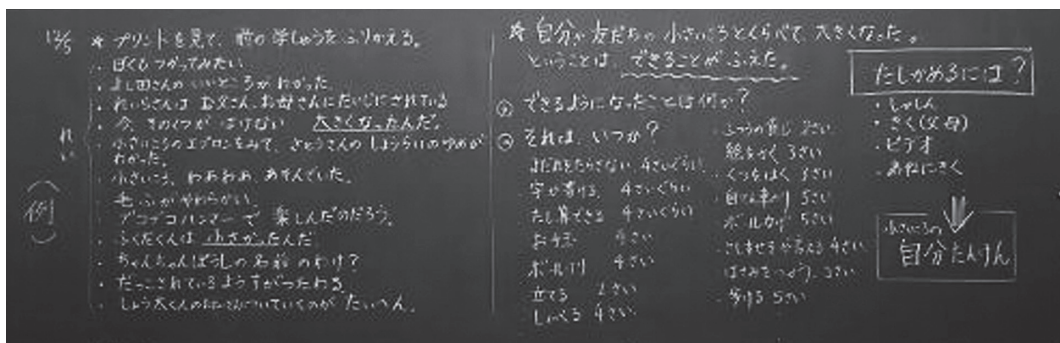 12/5 ＊プリントを見て、前の学しゅうをふりかえる。
・ぼくもつかってみたい
・よし田さんのいいところがわかった
・れいらさんは お父さん、お母さんにだいじにされている
・今 そのくつが はけない 大きくなったんだ。
・小さいころのエプロンをみて、さとうさんのしょうらいのゆめが
わかった。
・小さいころ、わあわあ、あそんでいた。
・毛ふがやわらかい
・デコデコハンマーで 楽しんだのだろう。
・ふくだくんは 小さかったんだ
・ちゃんちゃんぼうしの名前のわけ?
・だっこされているようすがつたわる
・しょう太くんの
ついていくのが たいへん。
れい
(例)
＊自分や友だちの小さいころとくらべて、大きくなった。
ということは、できることがふえた。
できるようになったことは何か?
それは、いつか?
・よだれをたらさない 4さいぐらい
・字が書ける 4さいぐらい
・たし算できる 4さいぐらい
4さい
4さい
・立てる
4さい
2さい
・絵をかく 3さい
・くつをはく 3さい
5さい
5さい
4さい
・はさみをつかう
5さい
たしかめるには?
・しゃしん
・きく(父母)
・ビデオ
・あねにきく
小さいころの
自分たんけん